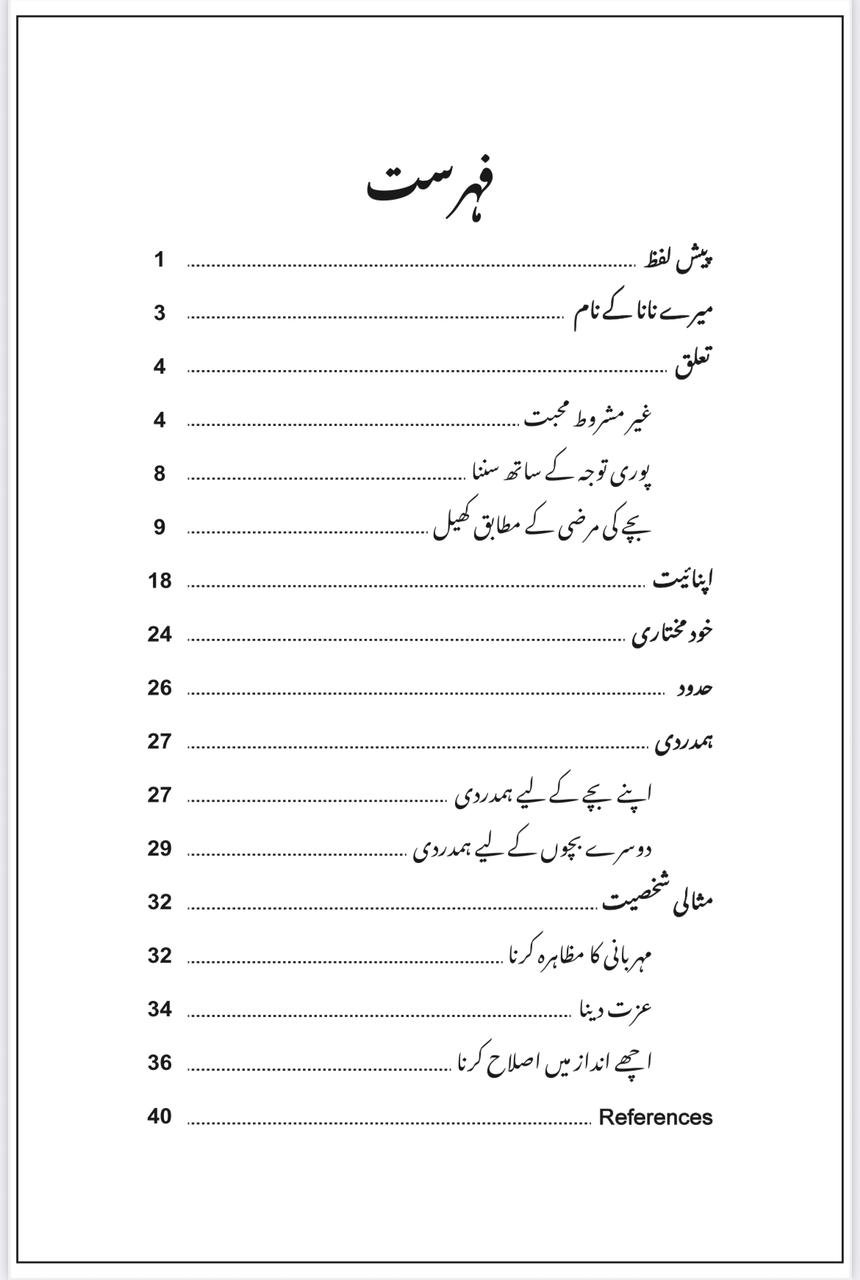 فہرست
پیش لفظ ........ 1
میرے نانا کے نام ........ 3
تعلق ........ 4
غیر مشروط محبت ........ 4
پوری توجہ کے ساتھ سننا ........ 8
بچے کی مرضی کے مطابق کھیل ........ 9
اپنائیت ........ 18
خود مختاری ........ 24
حدود ........ 26
ہمدردی ........ 27
اپنے بچے کے لیے ہمدردی ........ 27
دوسرے بچوں کے لیے ہمدردی ........ 29
مثالی شخصیت ........ 32
مہربانی کا مظاہرہ کرنا ........ 32
عزت دینا ........ 34
اچھے انداز میں اصلاح کرنا ........ 36
References ........ 40